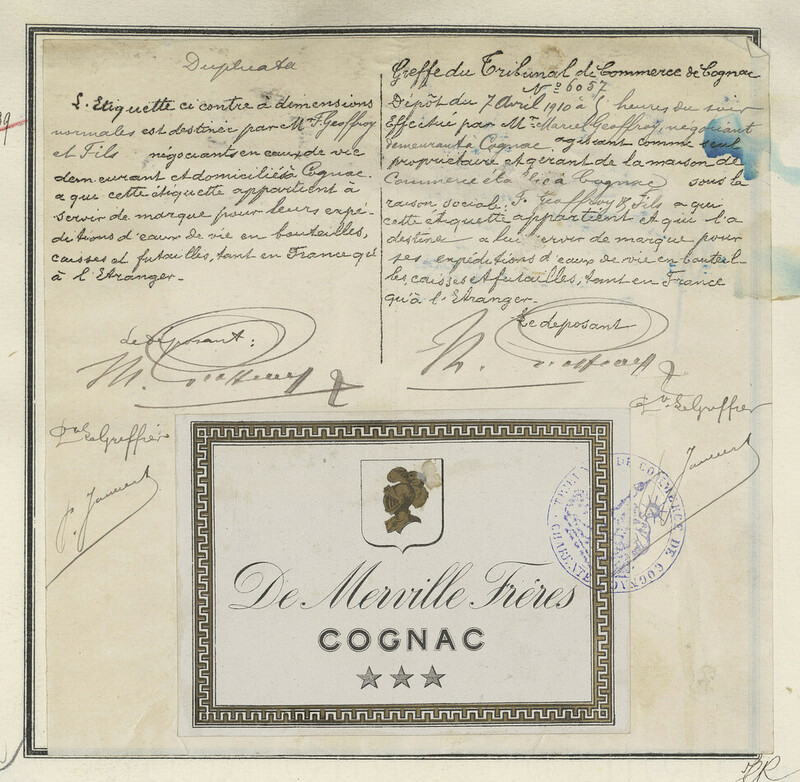 Duplicata
L'Etiquette ci contre à dimensions
normales est destinée par Mr. F. Geoffroy
et Fils négociants en eaux de vie
demeurant et domiciliés à Cognac.
a qui cette étiquette appartient à
servir de marque pour leurs expé-
ditions d'eaux de vie en bouteilles,
caisses et futailles, tant en France qu'
à l'Etranger.-
Le déposant:
Pr le Greffier
Greffe du Tribunal de Commerce de Cognac
No 6057
Dépôt du 7 Avril 1910 à 5 heures du soir
Effectué par Mr. Marcel Geoffroy, négociant
demeurant à Cognac agissant comme seul
propriétaire et gérant de la maison de
Commerce établie à Cognac sous la
raison sociale: F. Geoffroy & Fils a qui
cette étiquette appartient et qui l'a
destinée a lui servir de marque pour
ses expéditions d'eaux de vie en bouteil-
les, caisses et futailles, tant en France
qu'à l'Etranger.-
Le deposant
Pr le Greffier
TRIBUNAL DE COMMERCE DE COGNAC
CHARENTE
De Merville Frères
COGNAC